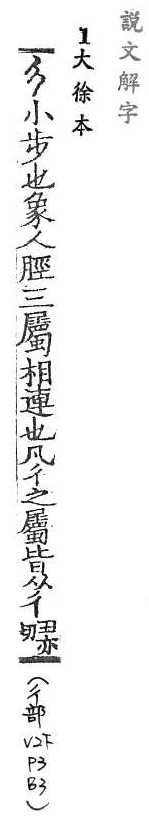 説文解字
1大徐本
彳小步也象人脛三屬相連也凡彳之屬皆从彳丑亦切
(彳部
V2下
P3
B3)